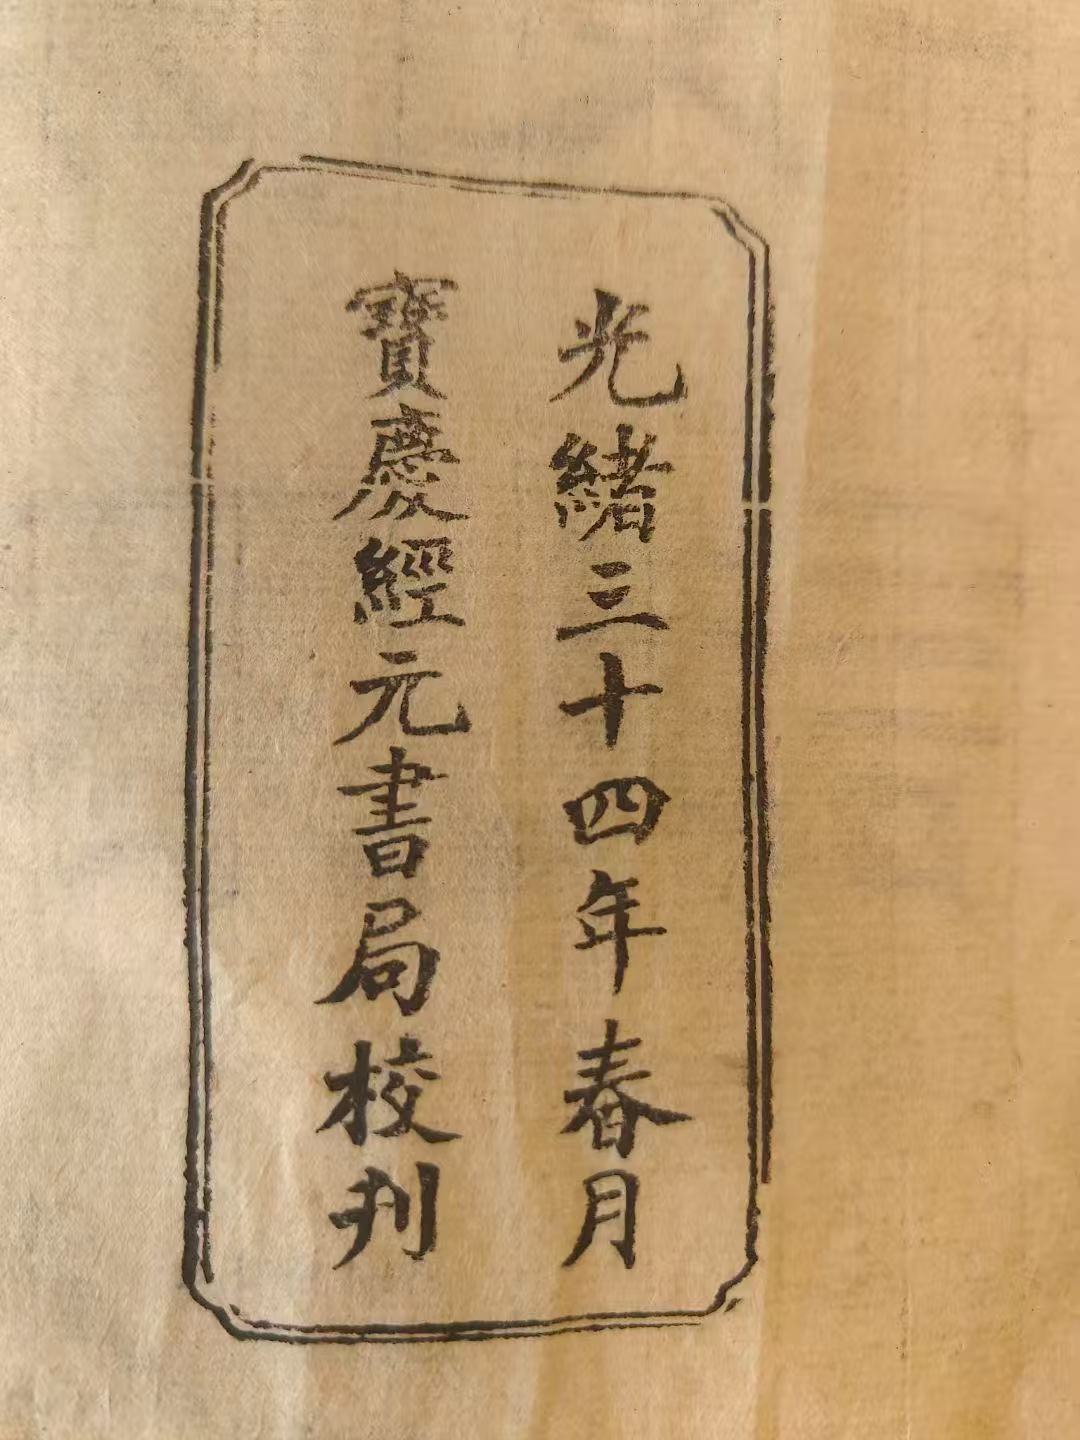 光緒三十四年春月
寶慶經元書局校刋